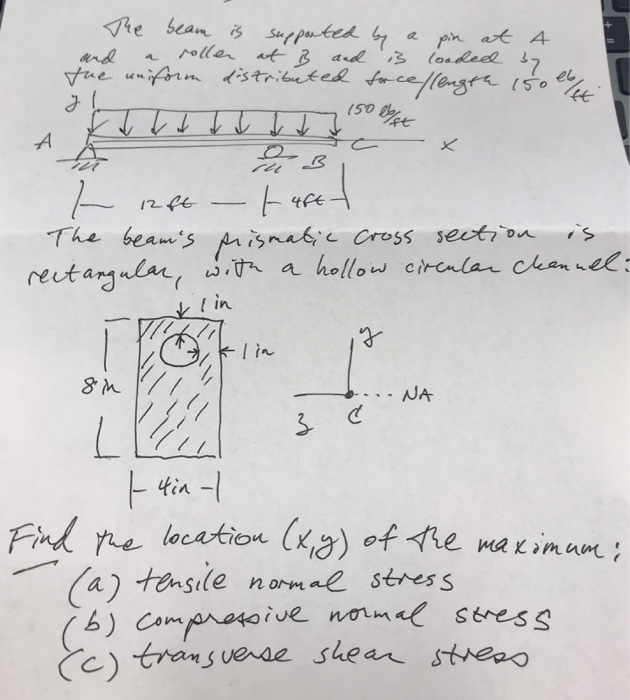 The beam is supported by a pin at A
and a roller at B and is loaded by
the uniform distributed force/length 150 lb/ft.
y
150 lb/ft
A
C
x
B
12 ft
4 ft
The beam's prismatic cross section is
rectangular, with a hollow circular channel:
1 in
1 in
8 in
y
NA
z
C
4 in
Find the location (x,y) of the maximum:
(a) tensile normal stress
(b) compressive normal stress
(c) transverse shear stress